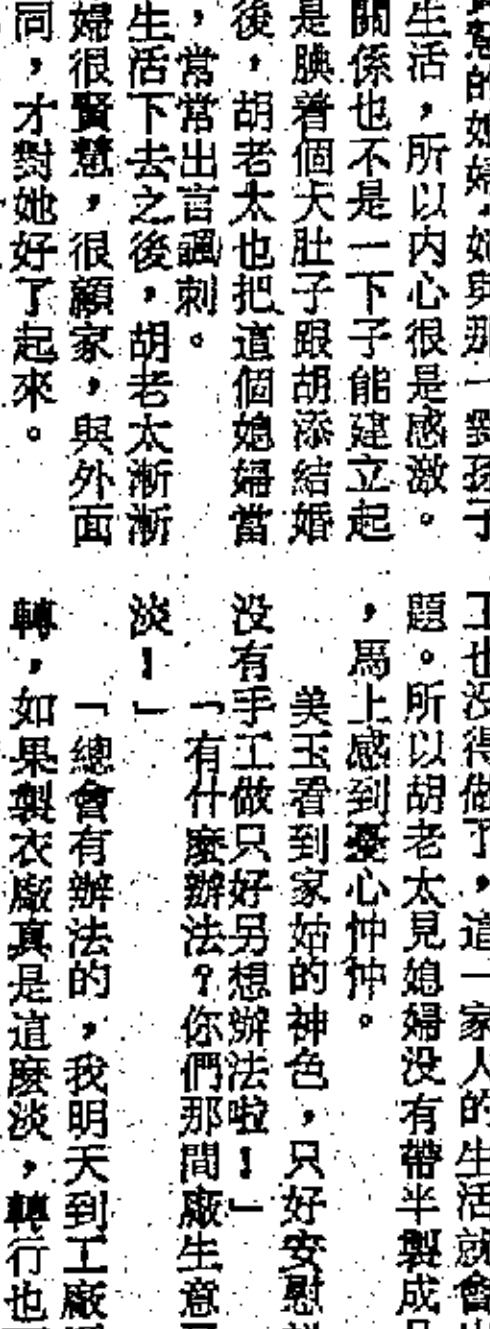 的媳婦,她與那一對孫子
生活,所以内心很是感激。
關係也不是一下子能建立起
是腆着個大肚子跟胡添結婚
後,胡老太也把這個媳婦當
,常常出言諷刺。
生活下去之後,胡老太漸漸
婦很賢慧,很顧家,與外面
同,才對她好了起來。
工也没得做了,這一家人的生活就會
題。所以胡老太見媳婦没有帶半製成
,馬上感到憂心忡忡。
美玉看到家姑的神色,只好安慰
没有手工做只好另想辦法啦!」
「有什麽辦法?你們那間廠生意
淡!」
「總會有辦法的,我明天到工廠
轉,如果製衣廠真是這麽淡,轉行也